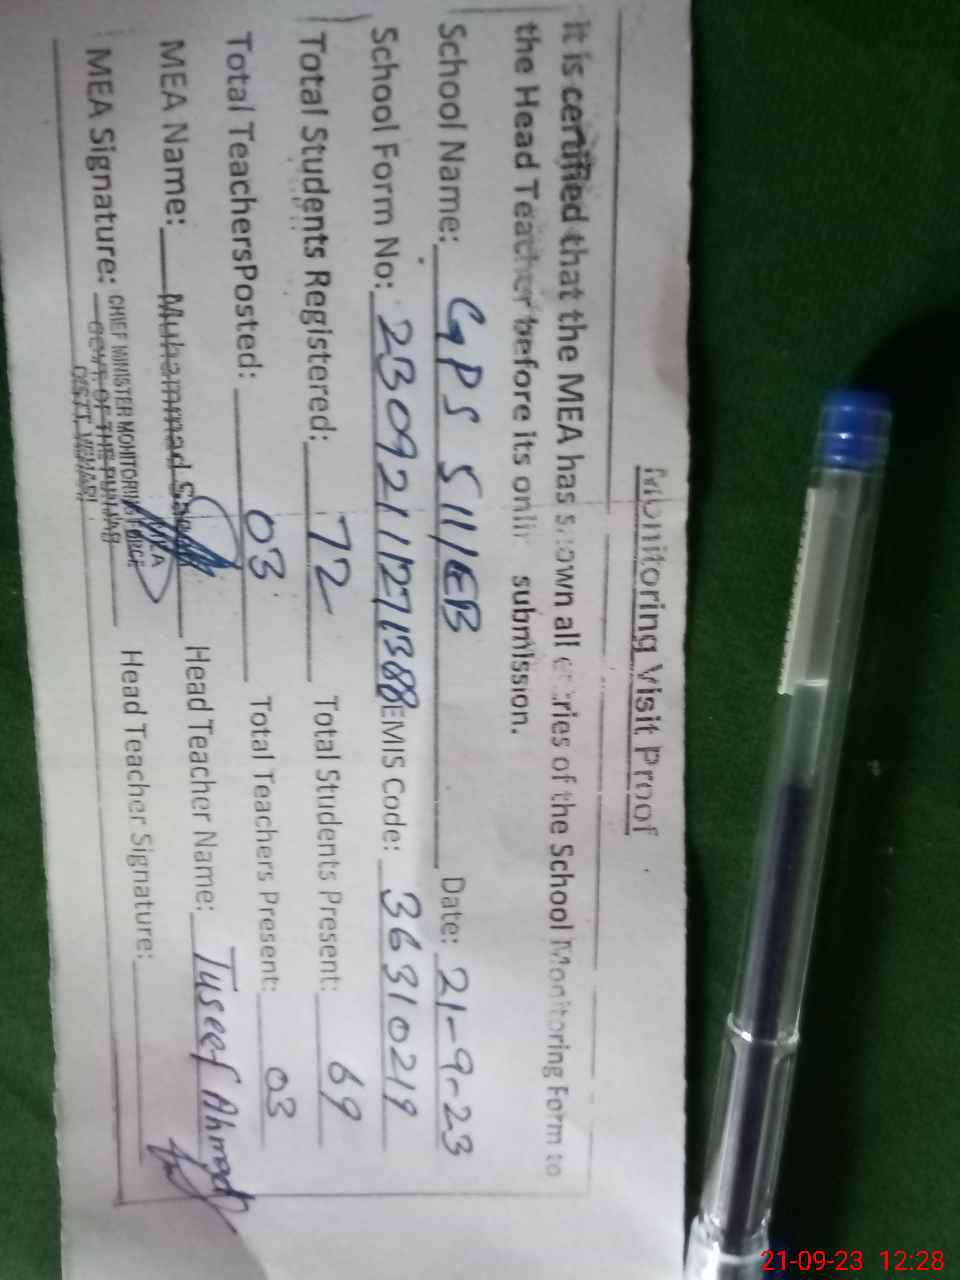 Monitoring Visit Proof
It is certified that the MEA has shown all entries of the School Monitoring Form to
the Head Teacher before its online submission.
School Name: GPS 511/EB Date: 21-9-23
School Form No: 2309211271388 EMIS Code: 36310219
Total Students Registered: 72 Total Students Present: 69
Total TeachersPosted: 03 Total Teachers Present: 03
MEA Name: Muhammad Saeed Head Teacher Name: Tuseef Ahmad
MEA Signature: Head Teacher Signature:
MEA
CHIEF MINISTER MONITORING FORCE
GOVT. OF THE PUNJAB
DISTT. VEHARI
21-09-23 12:28